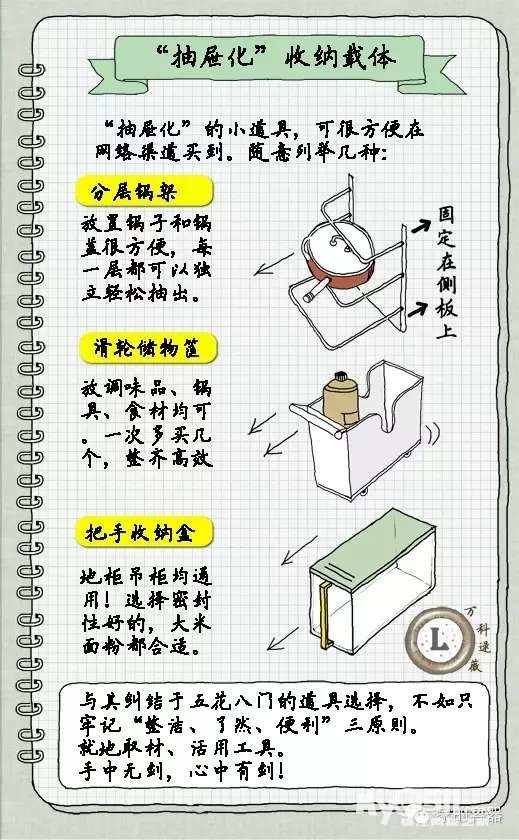 “抽屉化”收纳载体
“抽屉化”的小道具，可很方便在
网络渠道买到。随意列举几种：
分层锅架
放置锅子和锅
盖很方便，每
一层都可以独
立轻松抽出。
固定在侧板上
滑轮储物筐
放调味品、锅
具、食材均可
。一次多买几
个，整齐高效
把手收纳盒
地柜吊柜均通
用！选择密封
性好的，大米
面粉都合适。
L
万科逯薇
与其纠结于五花八门的道具选择，不如只
牢记“整洁、了然、便利”三原则。
就地取材、活用工具。
手中无剑，心中有剑！